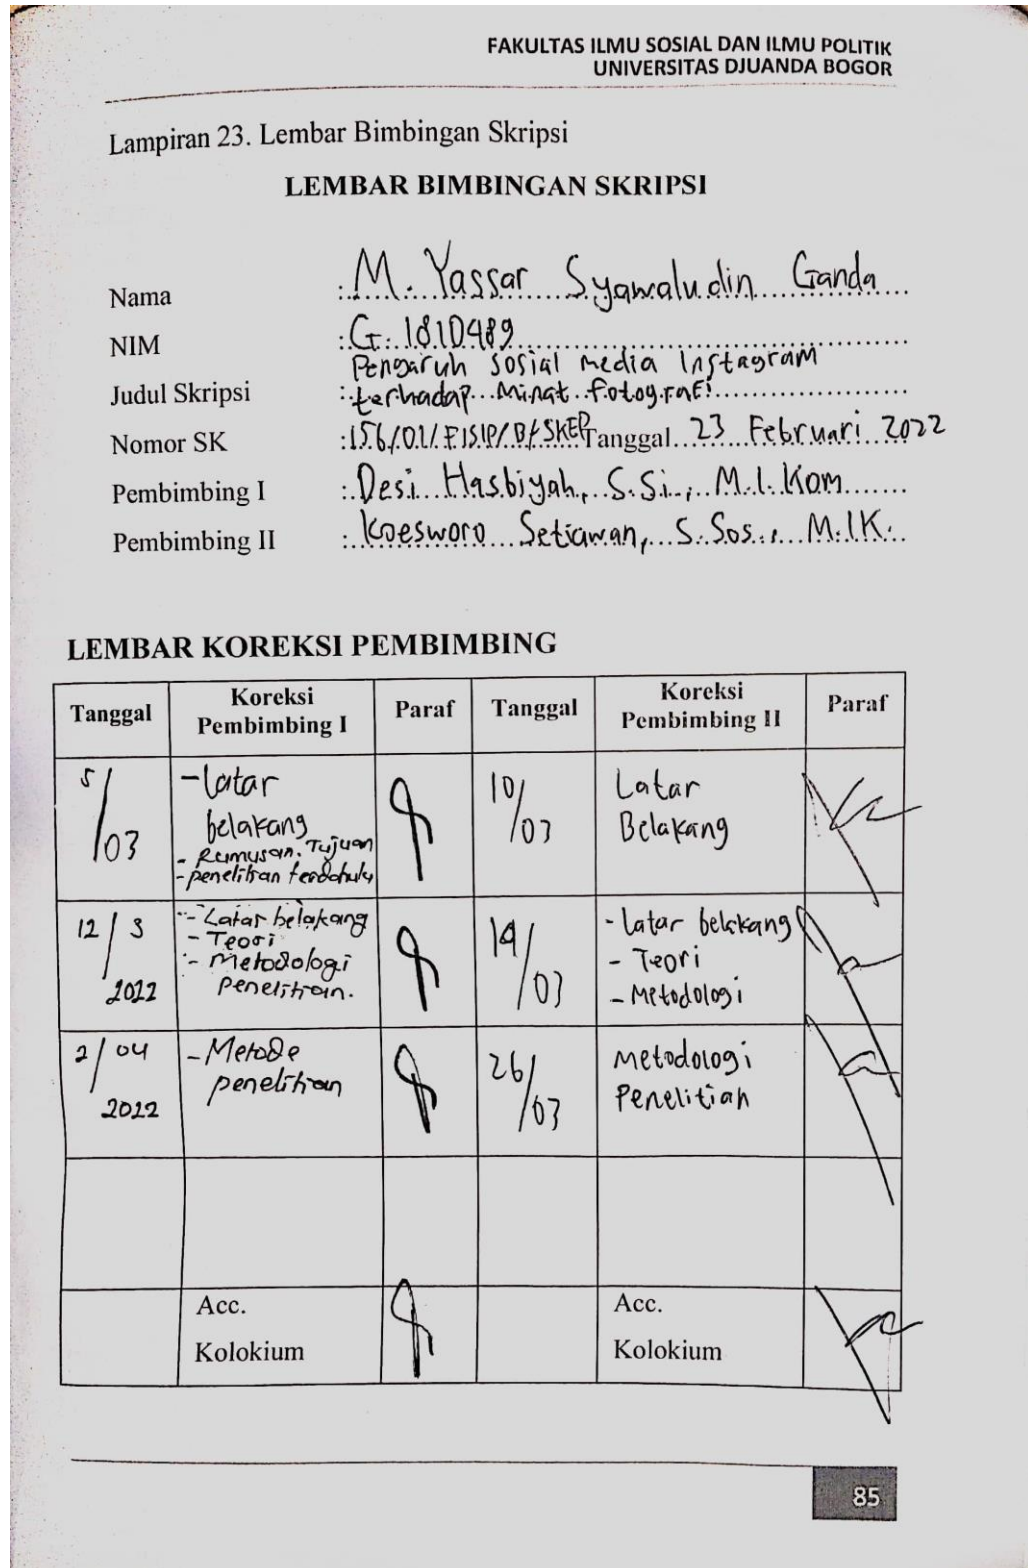 FAKULTAS ILMU SOSIAL DAN ILMU POLITIK
UNIVERSITAS DJUANDA BOGOR
Lampiran 23. Lembar Bimbingan Skripsi
LEMBAR BIMBINGAN SKRIPSI
Nama : M. Yassar Syawaludin Ganda
NIM : G. 1810489
Judul Skripsi : Pengaruh sosial media Instagram
terhadap Minat fotografi
Nomor SK : 156/01/FISIP/B/SKEP Tanggal 23 Februari 2022
Pembimbing I : Desi Hasbiyah, S.Si., M.I.Kom
Pembimbing II : Koesworo Setiawan, S.Sos., M.IK.
LEMBAR KOREKSI PEMBIMBING
Tanggal Koreksi Pembimbing I Paraf Tanggal Koreksi Pembimbing II Paraf
5/03
- Latar
belakang
- Rumusan. Tujuan
- penelitian terdahulu
10/03
Latar
Belakang
12/3
2022
- Latar belakang
- Teori
- Metodologi
penelitian.
14/03
- Latar belakang
- Teori
- Metodologi
2/04
2022
- Metode
penelitian
26/03
Metodologi
Penelitian
Acc.
Kolokium
Acc.
Kolokium
85